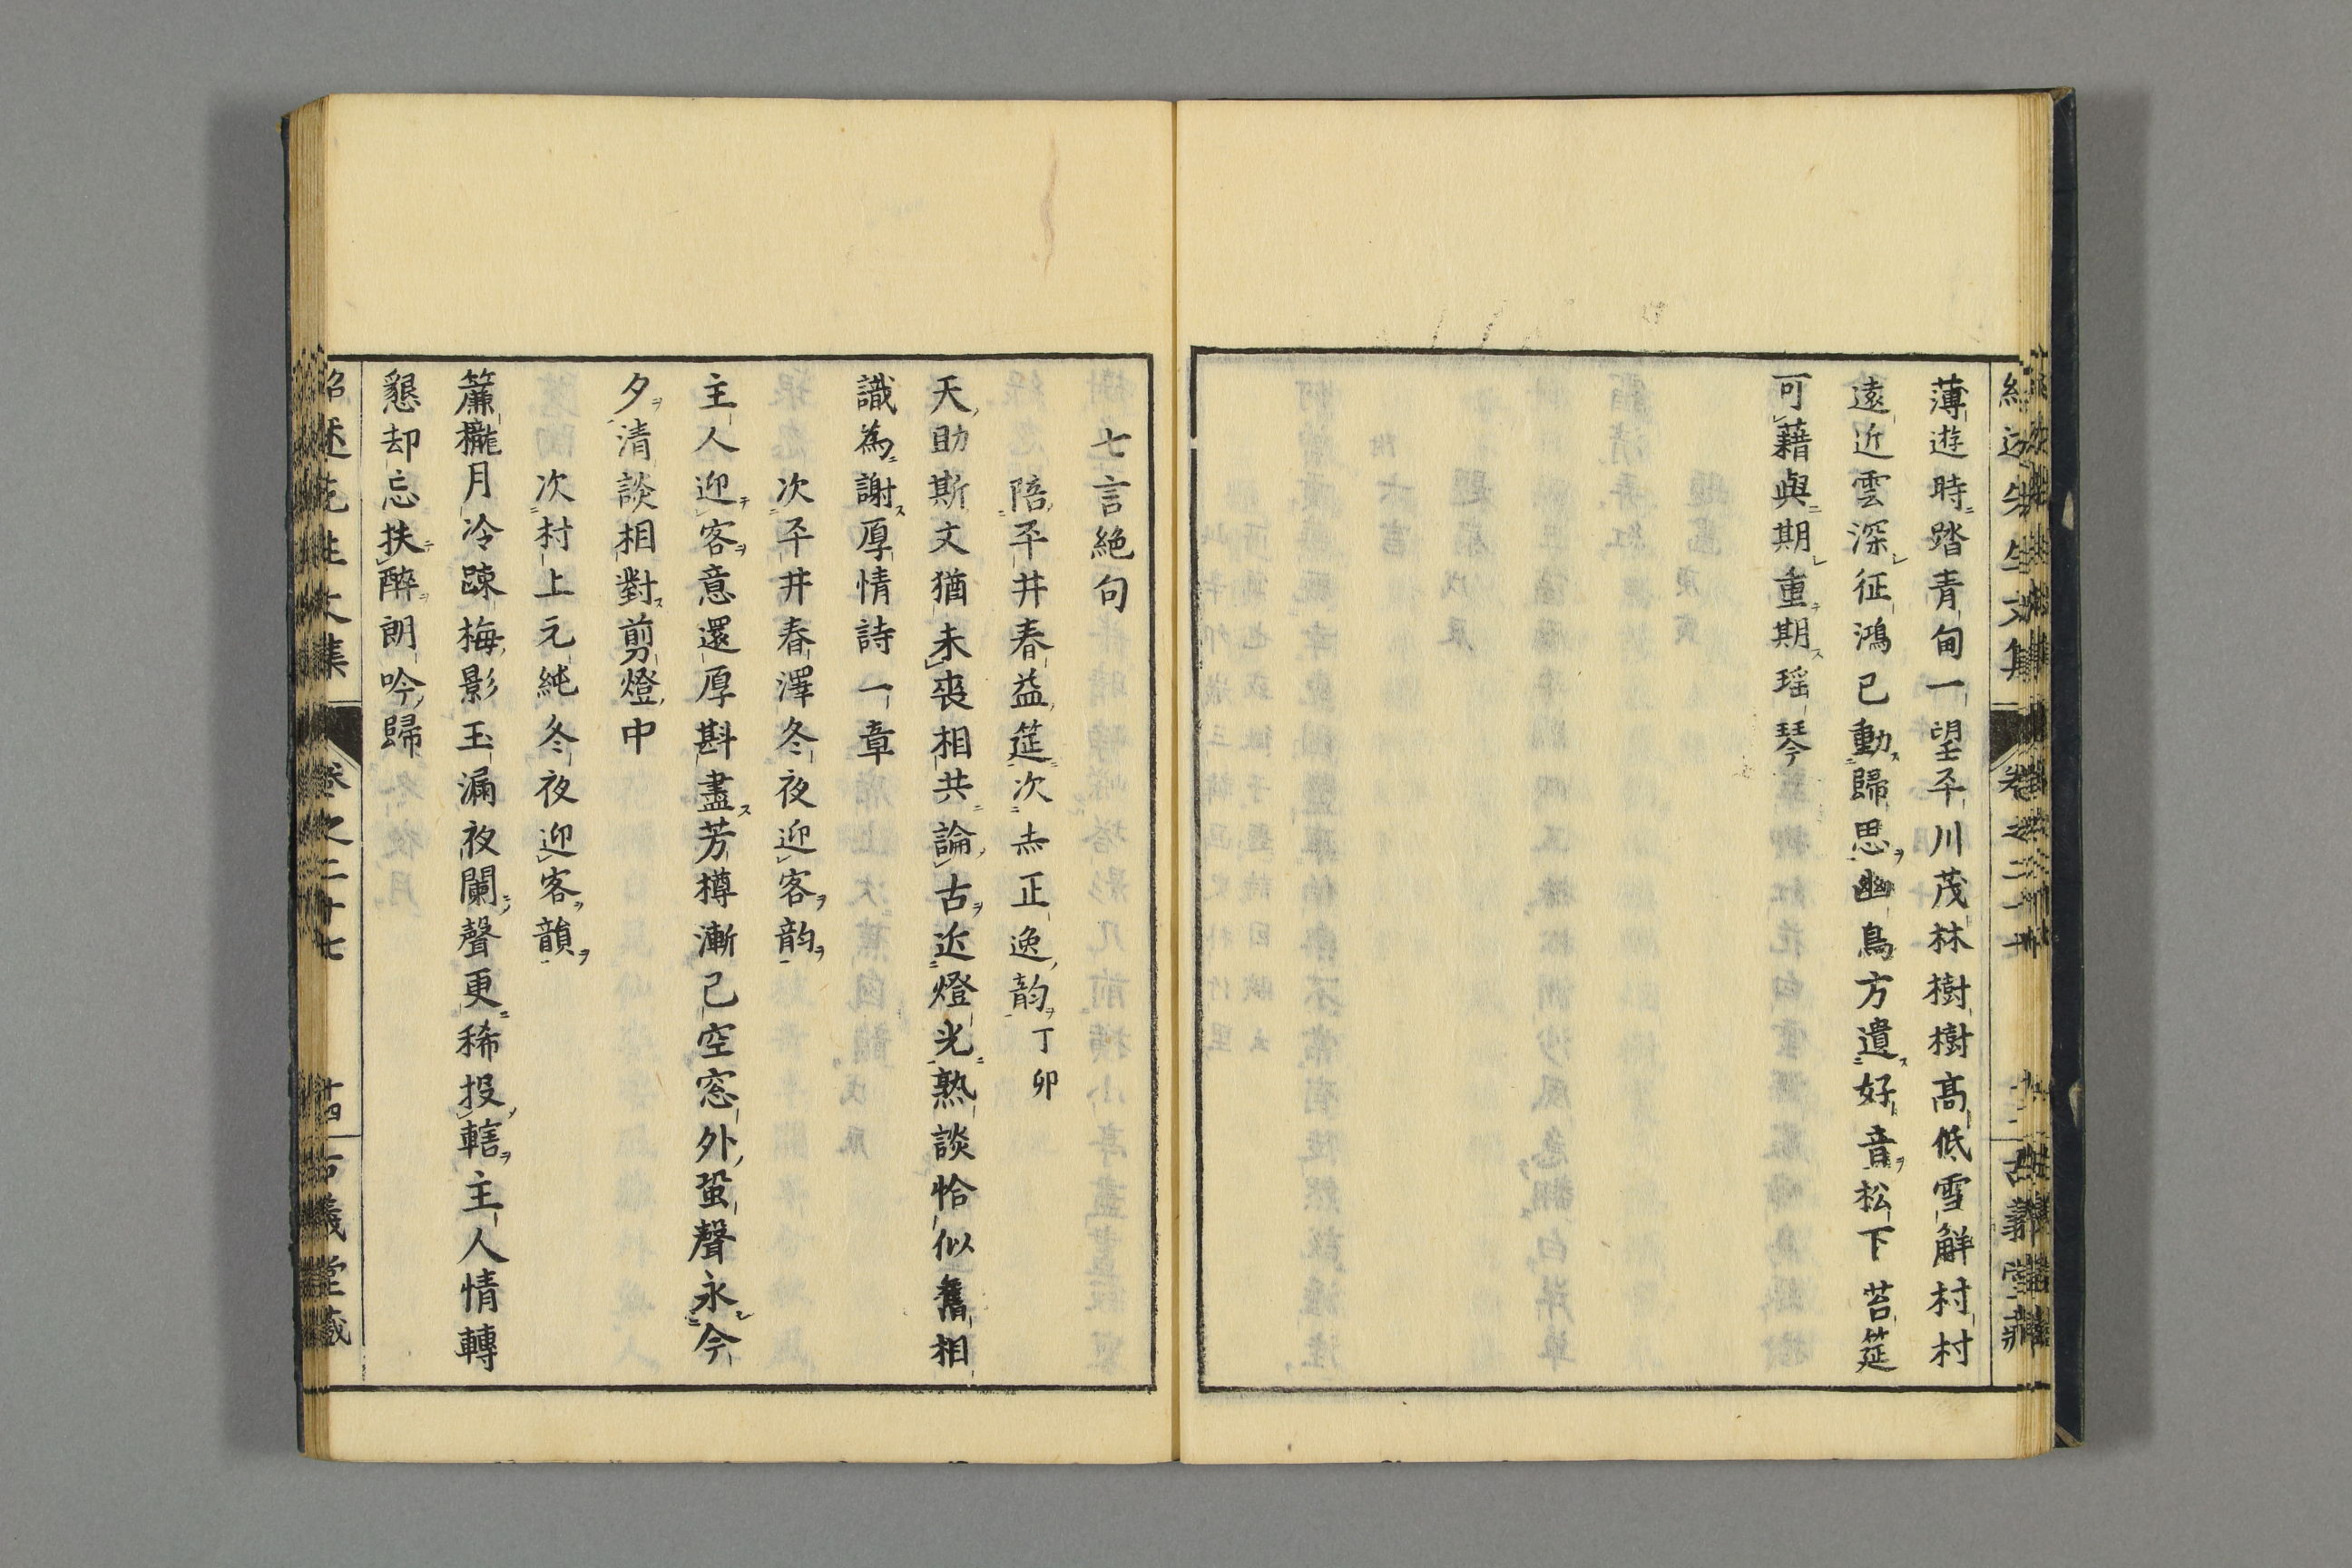 薄遊時踏青甸一望平川茂林樹樹高低雪解村村
遠近雲深征鴻已動歸思幽鳥方遺好音松下苔筵
可藉與期重期瑶琴
七言絶句
陪平井春益筵次赤正逸韵丁卯
天助斯文猶未喪相共論古近燈光熟談恰似舊相
識為謝厚情詩一章
次平井春澤冬夜迎客韵
主人迎客意還厚斟盡芳樽漸已空窓外蛩聲永今
夕清談相對剪燈中
次村上元純冬夜迎客韻
簾櫳月冷踈梅影玉漏夜闌聲更稀投轄主人情轉
懇却忘扶醉朗吟歸
紹述先生文集 卷之二十七 十四 古義堂藏